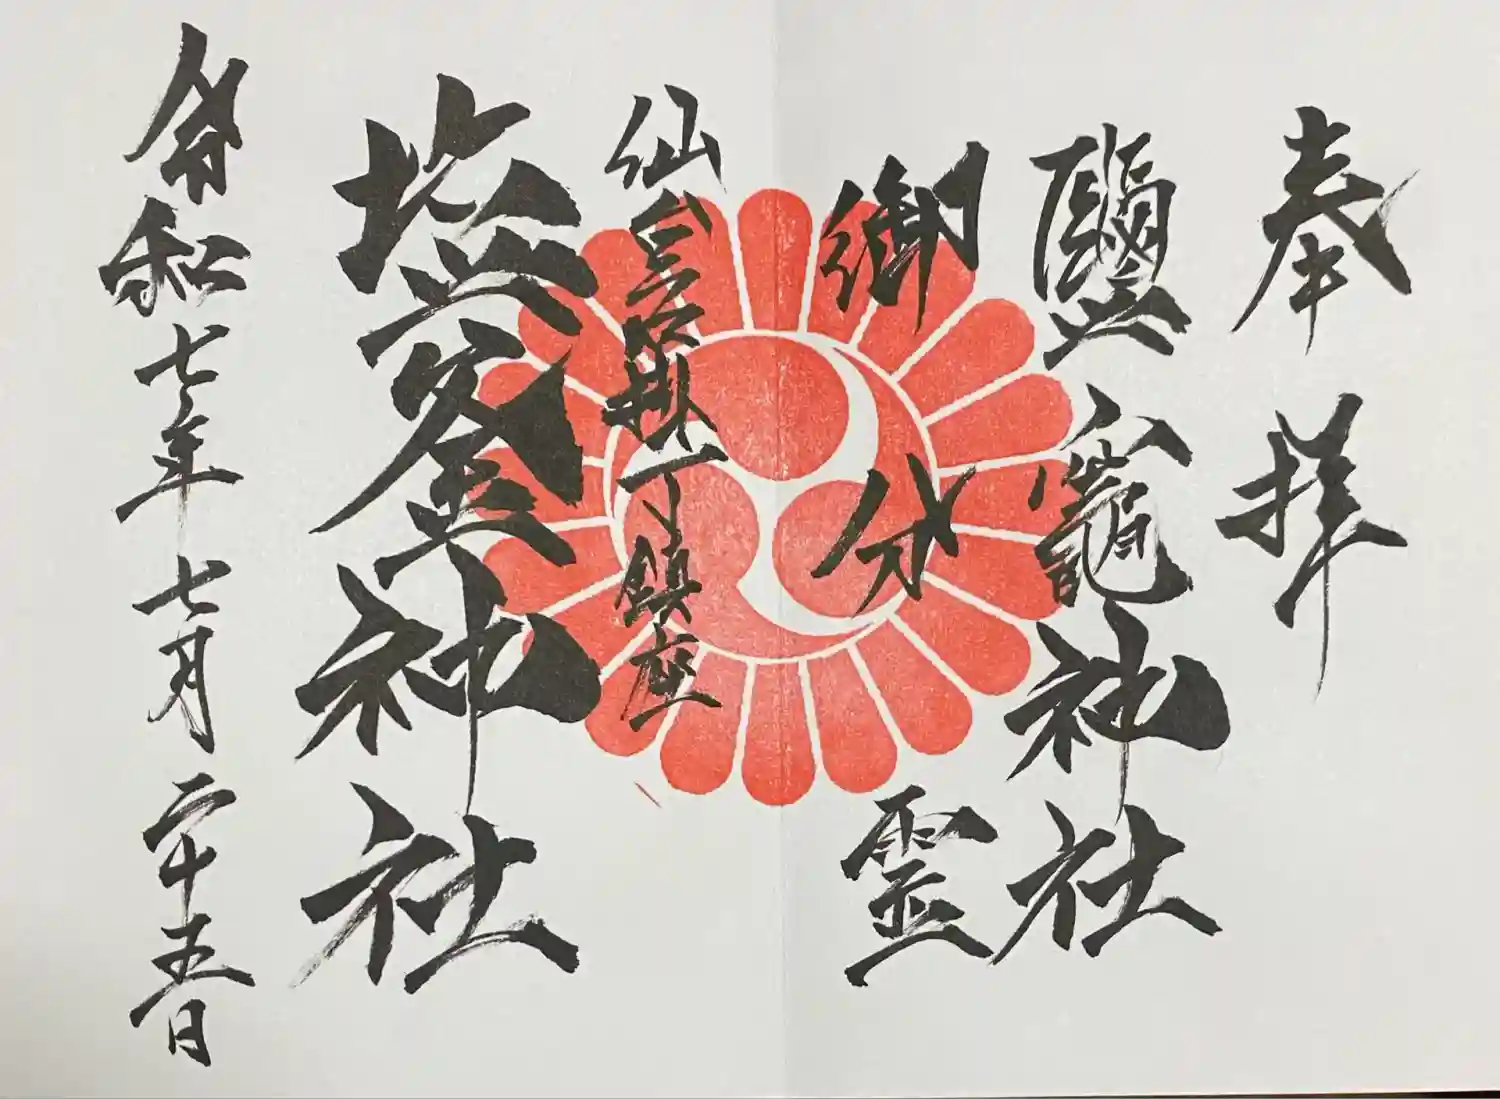 奉拝
鹽竈神社
御分霊
仙台 一丁 鎮座
塩釜神社
令和七年七月二十五日